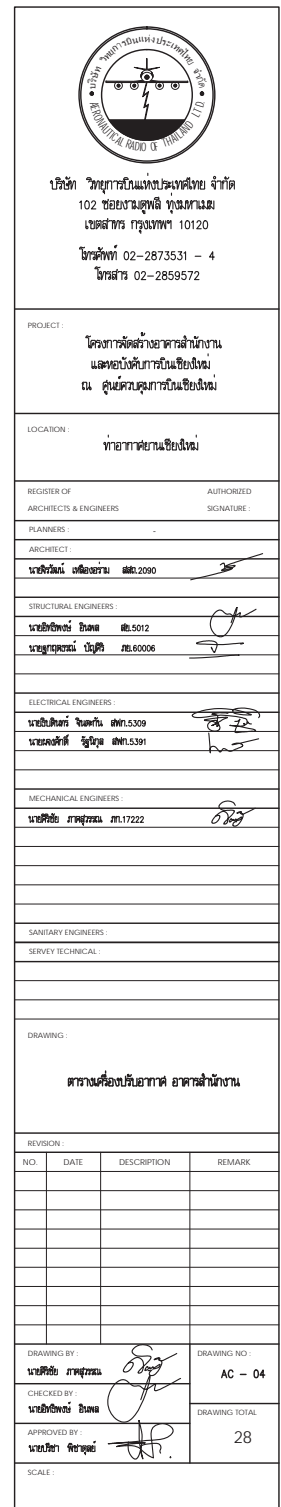 บริษัท วิทยุการบินแห่งประเทศไทย จำกัด
AERONAUTICAL RADIO OF THAILAND LTD.
บริษัท วิทยุการบินแห่งประเทศไทย จำกัด
102 ซอยงามดูพลี ทุ่งมหาเมฆ
เขตสาทร กรุงเทพฯ 10120
โทรศัพท์ 02-2873531 - 4
โทรสาร 02-2859572
PROJECT :
โครงการจัดสร้างอาคารสำนักงาน
และหอบังคับการบินเชียงใหม่
ณ ศูนย์ควบคุมการบินเชียงใหม่
LOCATION :
ท่าอากาศยานเชียงใหม่
REGISTER OF AUTHORIZED
ARCHITECTS & ENGINEERS SIGNATURE :
PLANNERS : -
ARCHITECT :
เหลืองอร่าม สสถ.2090
STRUCTURAL ENGINEERS :
นายอิทธิพงษ์ อินพล สย.5012
บัญศิริ ภย.60006
ELECTRICAL ENGINEERS :
จินตะกัน สฟก.5309
รัฐนิกุล สฟก.5391
MECHANICAL ENGINEERS :
นายศิริชัย ภาคสุวรรณ ภก.17222
SANITARY ENGINEERS :
SERVEY TECHNICAL :
DRAWING :
ตารางเครื่องปรับอากาศ อาคารสำนักงาน
REVISION :
NO. DATE DESCRIPTION REMARK
DRAWING BY :
นายศิริชัย ภาคสุวรรณ
DRAWING NO :
AC - 04
CHECKED BY :
นายอิทธิพงษ์ อินพล
DRAWING TOTAL
28
APPROVED BY :
นายปรีชา พิชาดุลย์
SCALE :